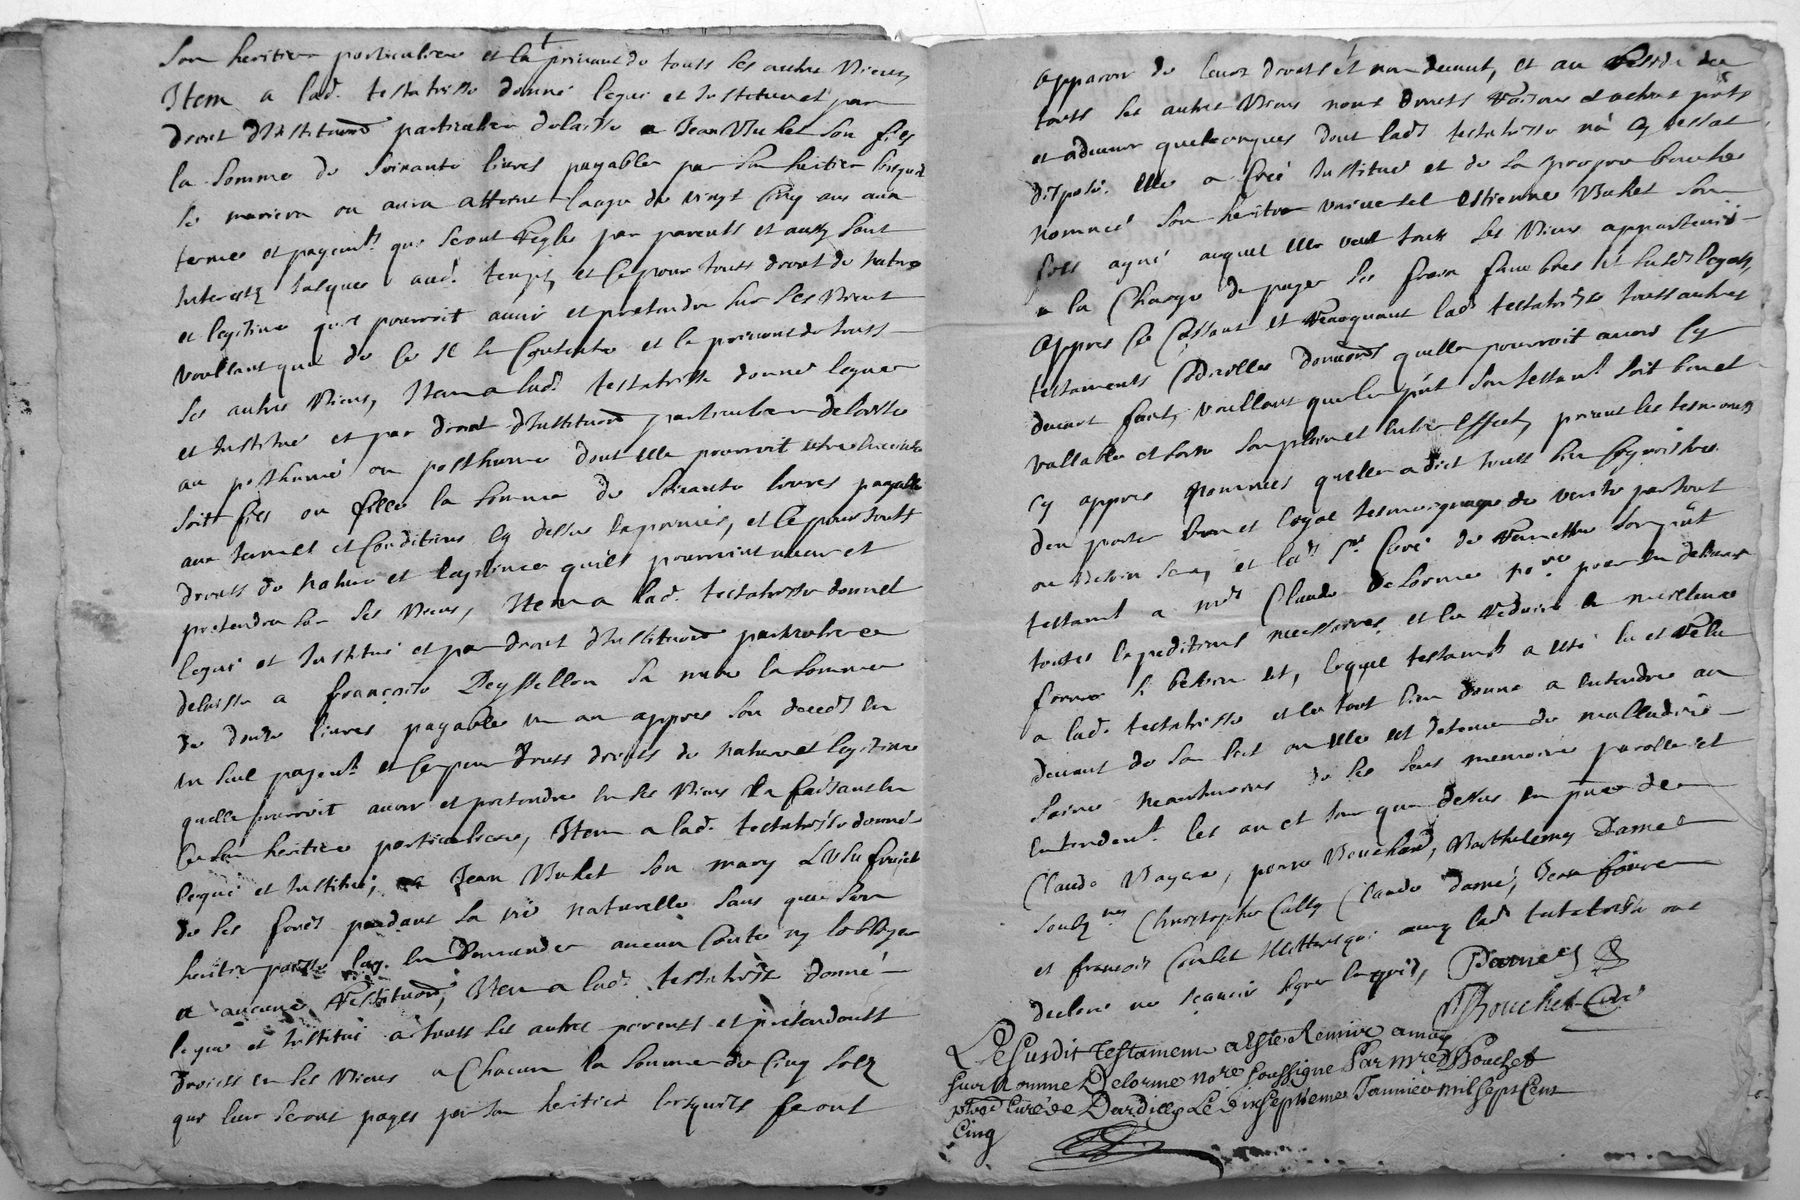 son heritier particuliere et la privant de touts ses autre biens,
Item a lad. testatrisse donné legué et institue et par
droit d'institution particuliere delaisse a Jean Buhet son fils
la somme de soixante livres payable par son heritier lorsquil
se mariera ou aura atteint laage de vingt cinq ans aux
termes et payemts qui seront regles par parents et amis sans
interestz jusques aud. temps, et ce pour touts droit de nature
et legitime quil pourroit avoir et pretendre sur ses biens
voullant que de ce il se contente et le privant de touts
ses autre biens, Item a lad. testatrisse donné legué
et institue et par droit d'institution particuliere delaisse
au posthume ou posthume dont elle pourroit estre enceinte
soit fils ou fille la somme de soixante livres payable
aux termes et conditions cy dessus exprimés, et ce pour touts
droits de nature et legitime quils pourroient avoir et
pretendre sur ses biens, Item a lad. testatrisse donné
legué et institué et par droit d'institution particuliere
delaisse a françoise Deyssellon sa mere la somme
de douze livres payable un an appres son deceds en
un seul payemt et ce pour touts droits de nature et legitime
quelle pourroit avoir et pretendre en ses biens la faisant en
ce son heritiere particuliere, Item a lad. testatrisse donné
legué et institué, a Jean Buhet son mary L'usufruict
de ses fonds pendant sa vie naturelle sans que son
heritier puisse luy en demander aucun conte ny l'obliger
a aucune restitution, Item a lad. testatrisse donné
legué et institué a touts ses autre parents et pretendants
droicts en ses biens a chacun la somme de cinq solz
qui leur seront payes par son heritier lorsquils feront
apparoir de leurs droits et non devant, et au residu de
touts ses autres biens noms droits raisons et actions pnts
et advenir quelconques dont lad. testatrisse n'a cy dessus
disposé. elle a créé institué et de sa propre bouche
nommé son heritier universel estienne Buhet son
fils ayné auquel elle veut touts ses biens appartenir
a la charge de payer ses fraix funebres et susd. legats,
appres ce cassant et revoquant lad. testatrisse touts autres
testaments codicilles donations quelle pourroit avoir cy
devant faict, voullant que le pnt son testamt soit bon et
vallable et sorte son plein et entier effect, priant les tesmoins
cy appres nommés quelle a dict touts bien cognoistre
den porter bon et loyal tesmoignage de verité par tout
ou besoin sera, et led. sr curé de remettre son pnt
testamt a mre Claude Delorme nore pour en delivrer
toutes expeditions necessaires et le rediure en meilleure
forme si besoin est, lequel testamt a esté lu et relu
a lad. testatrisse et le tout bien donné a entendre au
devant de son lict ou elle est detenue de malladie
saine neantmoins de ses sens memoire parolle et
entendemt les an et jour que dessus en pnce de
Claude Bayere, pierre Bouchard, Barthelemy Damet
soubznes Christophe Catty Claude damé, Jean faure
et françois Coulet Illetterés qui avec lad. testatrisse ont
declaré ne sçavoir signer enquis, Damet
Bouchet Curé
Le susdit testament a este Remire a moy
Guillaume Delorme nore soussigné Par mre Bouchet
pbre Curé de Dardilly Le dixseptieme Janvier mil sept Cent
Cinq